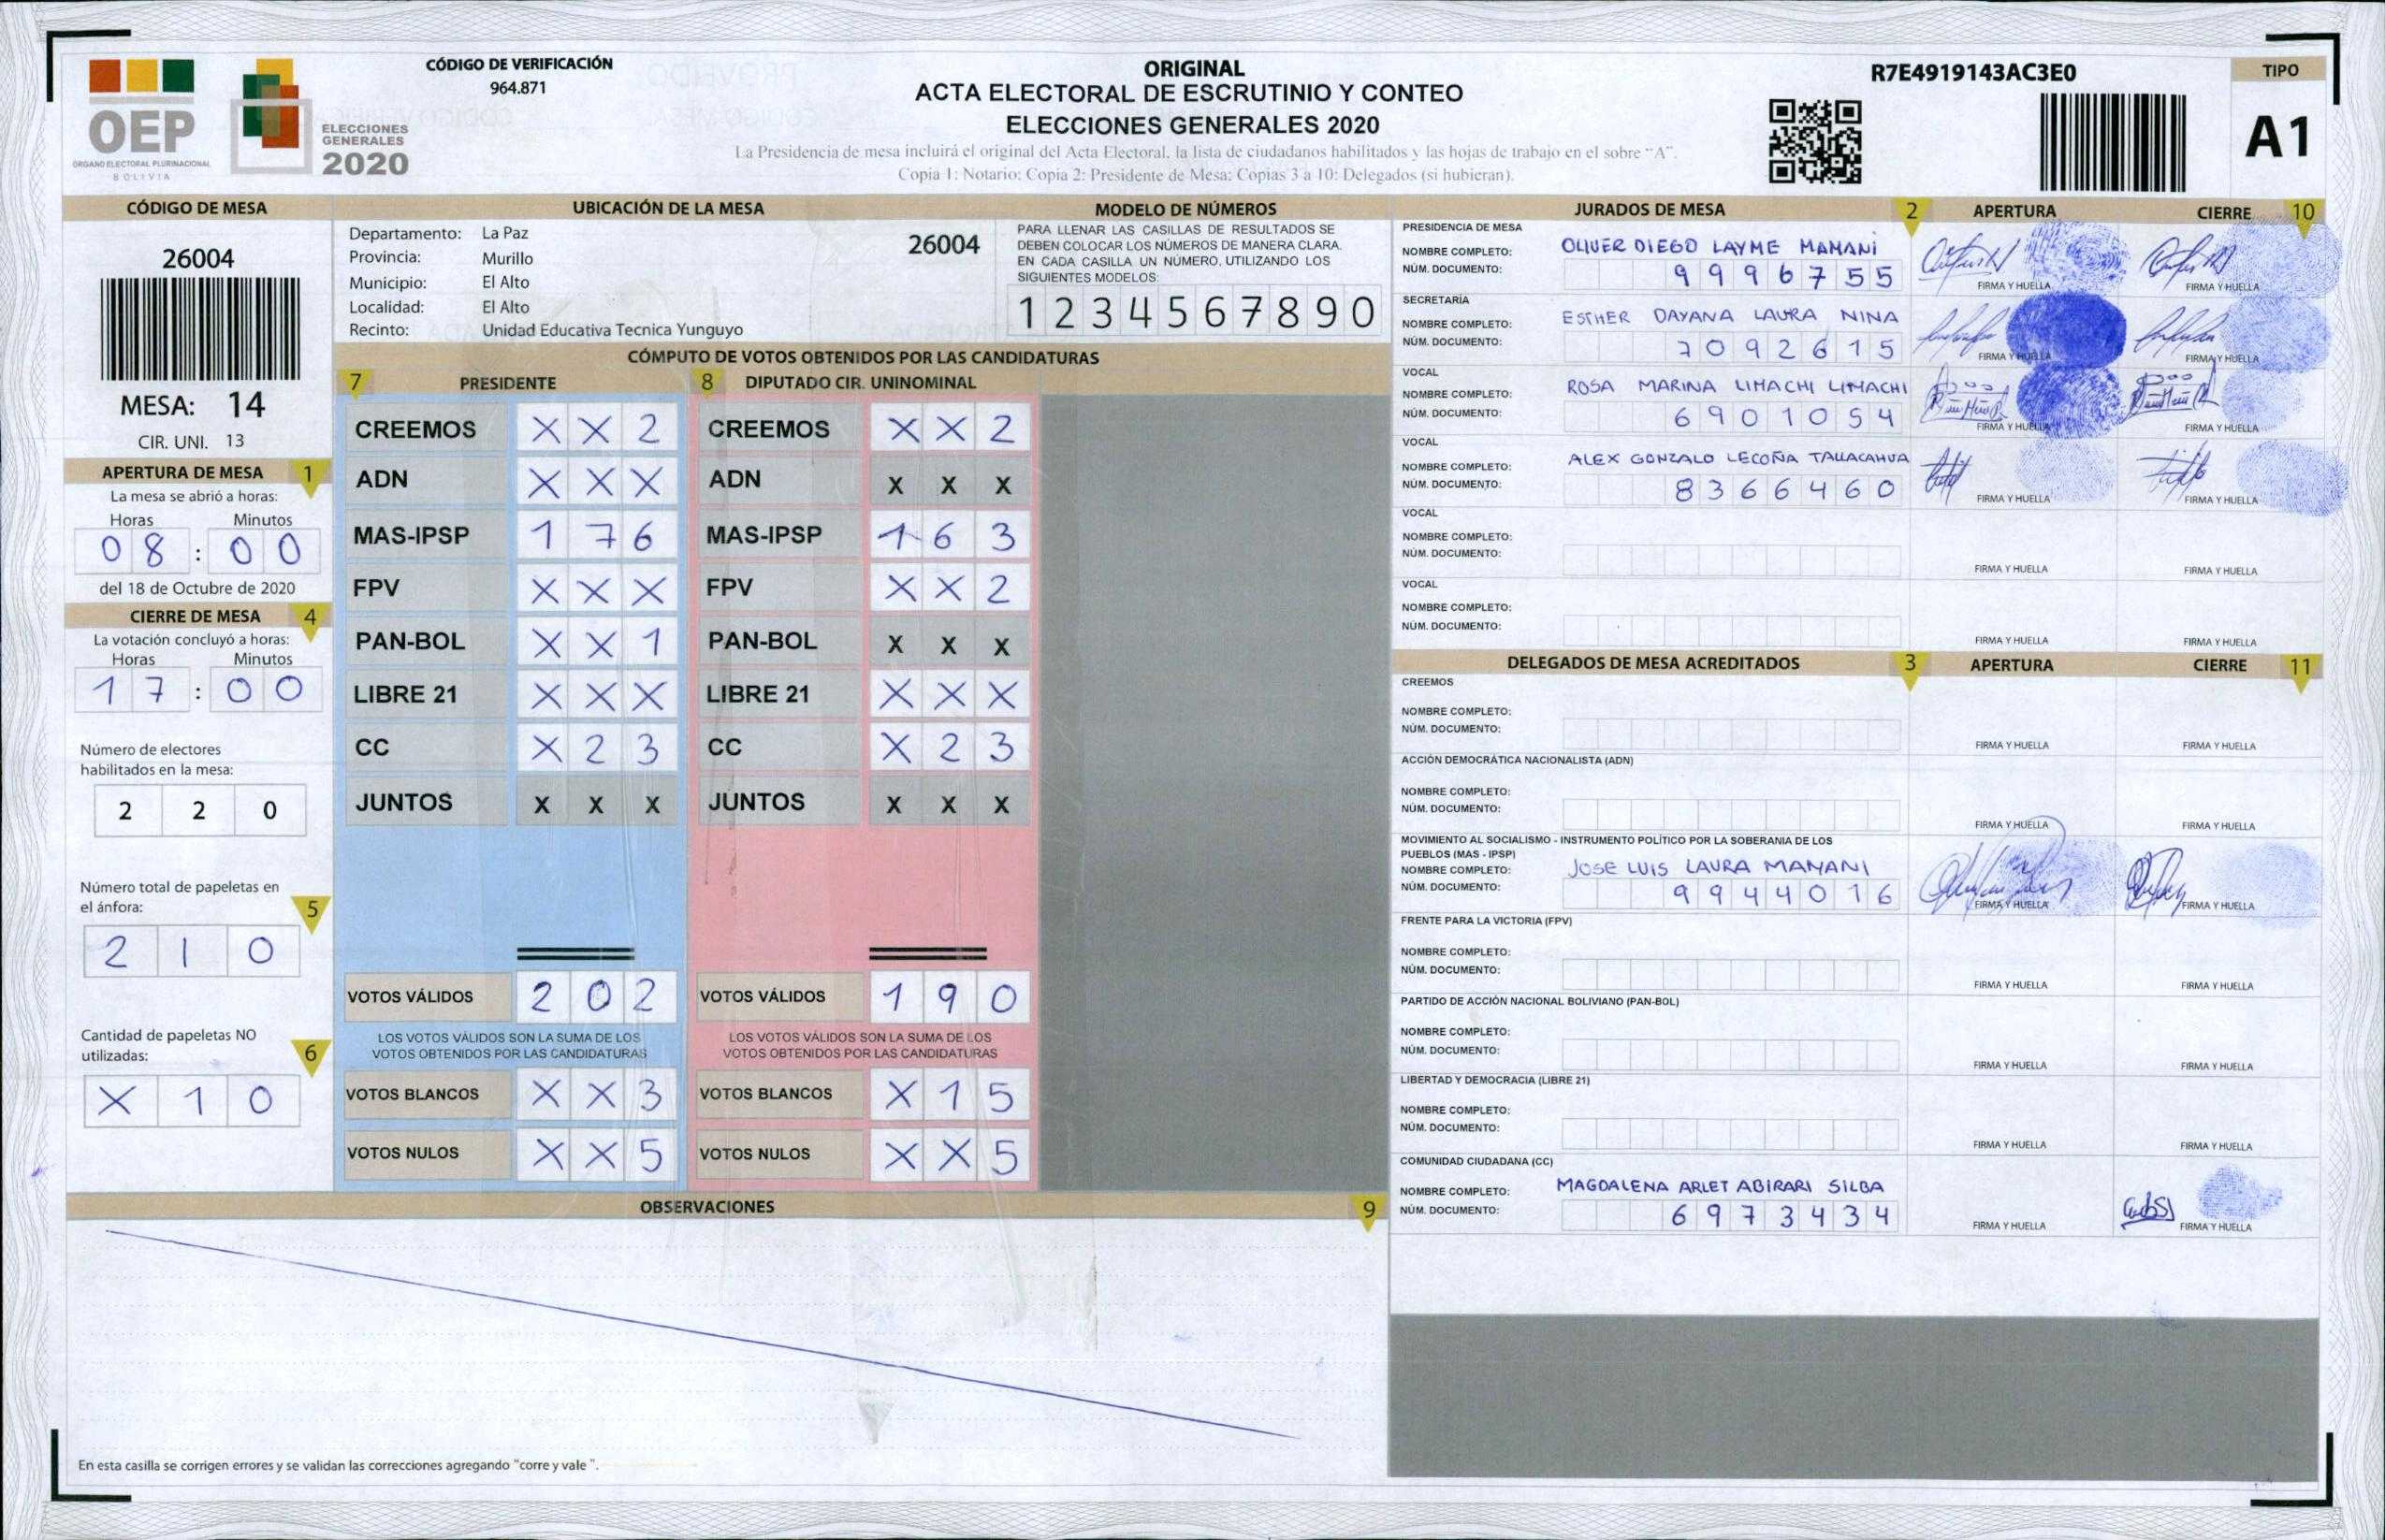 OEP
ORGANO ELECTORAL PLURINACIONAL
BOLIVIA
ELECCIONES
GENERALES
2020
CÓDIGO DE VERIFICACIÓN
964.871
ORIGINAL
ACTA ELECTORAL DE ESCRUTINIO Y CONTEO
ELECCIONES GENERALES 2020
La Presidencia de mesa incluirá el original del Acta Electoral, la lista de ciudadanos habilitados y las hojas de trabajo en el sobre "A".
Copia 1: Notario: Copia 2: Presidente de Mesa: Copias 3 a 10: Delegados (si hubieran).
R7E4919143AC3E0
TIPO
A1
CÓDIGO DE MESA
26004
MESA: 14
CIR. UNI. 13
APERTURA DE MESA 1
La mesa se abrió a horas:
Horas Minutos
08 : 00
del 18 de Octubre de 2020
CIERRE DE MESA 4
La votación concluyó a horas:
Horas Minutos
17 : 00
Número de electores
habilitados en la mesa:
2 2 0
Número total de papeletas en
el ánfora: 5
2 1 0
Cantidad de papeletas NO
utilizadas: 6
X 1 0
UBICACIÓN DE LA MESA
Departamento: La Paz
Provincia: Murillo
Municipio: El Alto
Localidad: El Alto
Recinto: Unidad Educativa Tecnica Yunguyo
26004
MODELO DE NÚMEROS
PARA LLENAR LAS CASILLAS DE RESULTADOS SE
DEBEN COLOCAR LOS NÚMEROS DE MANERA CLARA.
EN CADA CASILLA UN NÚMERO, UTILIZANDO LOS
SIGUIENTES MODELOS:
1 2 3 4 5 6 7 8 9 0
CÓMPUTO DE VOTOS OBTENIDOS POR LAS CANDIDATURAS
7 PRESIDENTE 8 DIPUTADO CIR. UNINOMINAL
CREEMOS X X 2 CREEMOS X X 2
ADN X X X ADN X X X
MAS-IPSP 1 7 6 MAS-IPSP 1 6 3
FPV X X X FPV X X 2
PAN-BOL X X 1 PAN-BOL X X X
LIBRE 21 X X X LIBRE 21 X X X
CC X 2 3 CC X 2 3
JUNTOS X X X JUNTOS X X X
VOTOS VÁLIDOS 2 0 2 VOTOS VÁLIDOS 1 9 0
LOS VOTOS VÁLIDOS SON LA SUMA DE LOS LOS VOTOS VÁLIDOS SON LA SUMA DE LOS
VOTOS OBTENIDOS POR LAS CANDIDATURAS VOTOS OBTENIDOS POR LAS CANDIDATURAS
VOTOS BLANCOS X X 3 VOTOS BLANCOS X 1 5
VOTOS NULOS X X 5 VOTOS NULOS X X 5
OBSERVACIONES 9
En esta casilla se corrigen errores y se validan las correcciones agregando "corre y vale ".
JURADOS DE MESA 2 APERTURA CIERRE 10
PRESIDENCIA DE MESA
NOMBRE COMPLETO: OLIVER DIEGO LAYME MAMANI
NÚM. DOCUMENTO: 9996755
FIRMA Y HUELLA FIRMA Y HUELLA
SECRETARÍA
NOMBRE COMPLETO: ESTHER DAYANA LAURA NINA
NÚM. DOCUMENTO: 7092615
FIRMA Y HUELLA FIRMA Y HUELLA
VOCAL
NOMBRE COMPLETO: ROSA MARINA LIMACHI LIMACHI
NÚM. DOCUMENTO: 6901054
FIRMA Y HUELLA FIRMA Y HUELLA
VOCAL
NOMBRE COMPLETO: ALEX GONZALO LECOÑA TALLACAHUA
NÚM. DOCUMENTO: 8366460
FIRMA Y HUELLA FIRMA Y HUELLA
VOCAL
NOMBRE COMPLETO:
NÚM. DOCUMENTO:
FIRMA Y HUELLA FIRMA Y HUELLA
VOCAL
NOMBRE COMPLETO:
NÚM. DOCUMENTO:
FIRMA Y HUELLA FIRMA Y HUELLA
DELEGADOS DE MESA ACREDITADOS 3 APERTURA CIERRE 11
CREEMOS
NOMBRE COMPLETO:
NÚM. DOCUMENTO:
FIRMA Y HUELLA FIRMA Y HUELLA
ACCIÓN DEMOCRÁTICA NACIONALISTA (ADN)
NOMBRE COMPLETO:
NÚM. DOCUMENTO:
FIRMA Y HUELLA FIRMA Y HUELLA
MOVIMIENTO AL SOCIALISMO - INSTRUMENTO POLÍTICO POR LA SOBERANIA DE LOS
PUEBLOS (MAS - IPSP)
NOMBRE COMPLETO: JOSE LUIS LAURA MAMANI
NÚM. DOCUMENTO: 9944016
FIRMA Y HUELLA FIRMA Y HUELLA
FRENTE PARA LA VICTORIA (FPV)
NOMBRE COMPLETO:
NÚM. DOCUMENTO:
FIRMA Y HUELLA FIRMA Y HUELLA
PARTIDO DE ACCIÓN NACIONAL BOLIVIANO (PAN-BOL)
NOMBRE COMPLETO:
NÚM. DOCUMENTO:
FIRMA Y HUELLA FIRMA Y HUELLA
LIBERTAD Y DEMOCRACIA (LIBRE 21)
NOMBRE COMPLETO:
NÚM. DOCUMENTO:
FIRMA Y HUELLA FIRMA Y HUELLA
COMUNIDAD CIUDADANA (CC)
NOMBRE COMPLETO: MAGDALENA ARLET ABIRARI SILBA
NÚM. DOCUMENTO: 6973434
FIRMA Y HUELLA FIRMA Y HUELLA